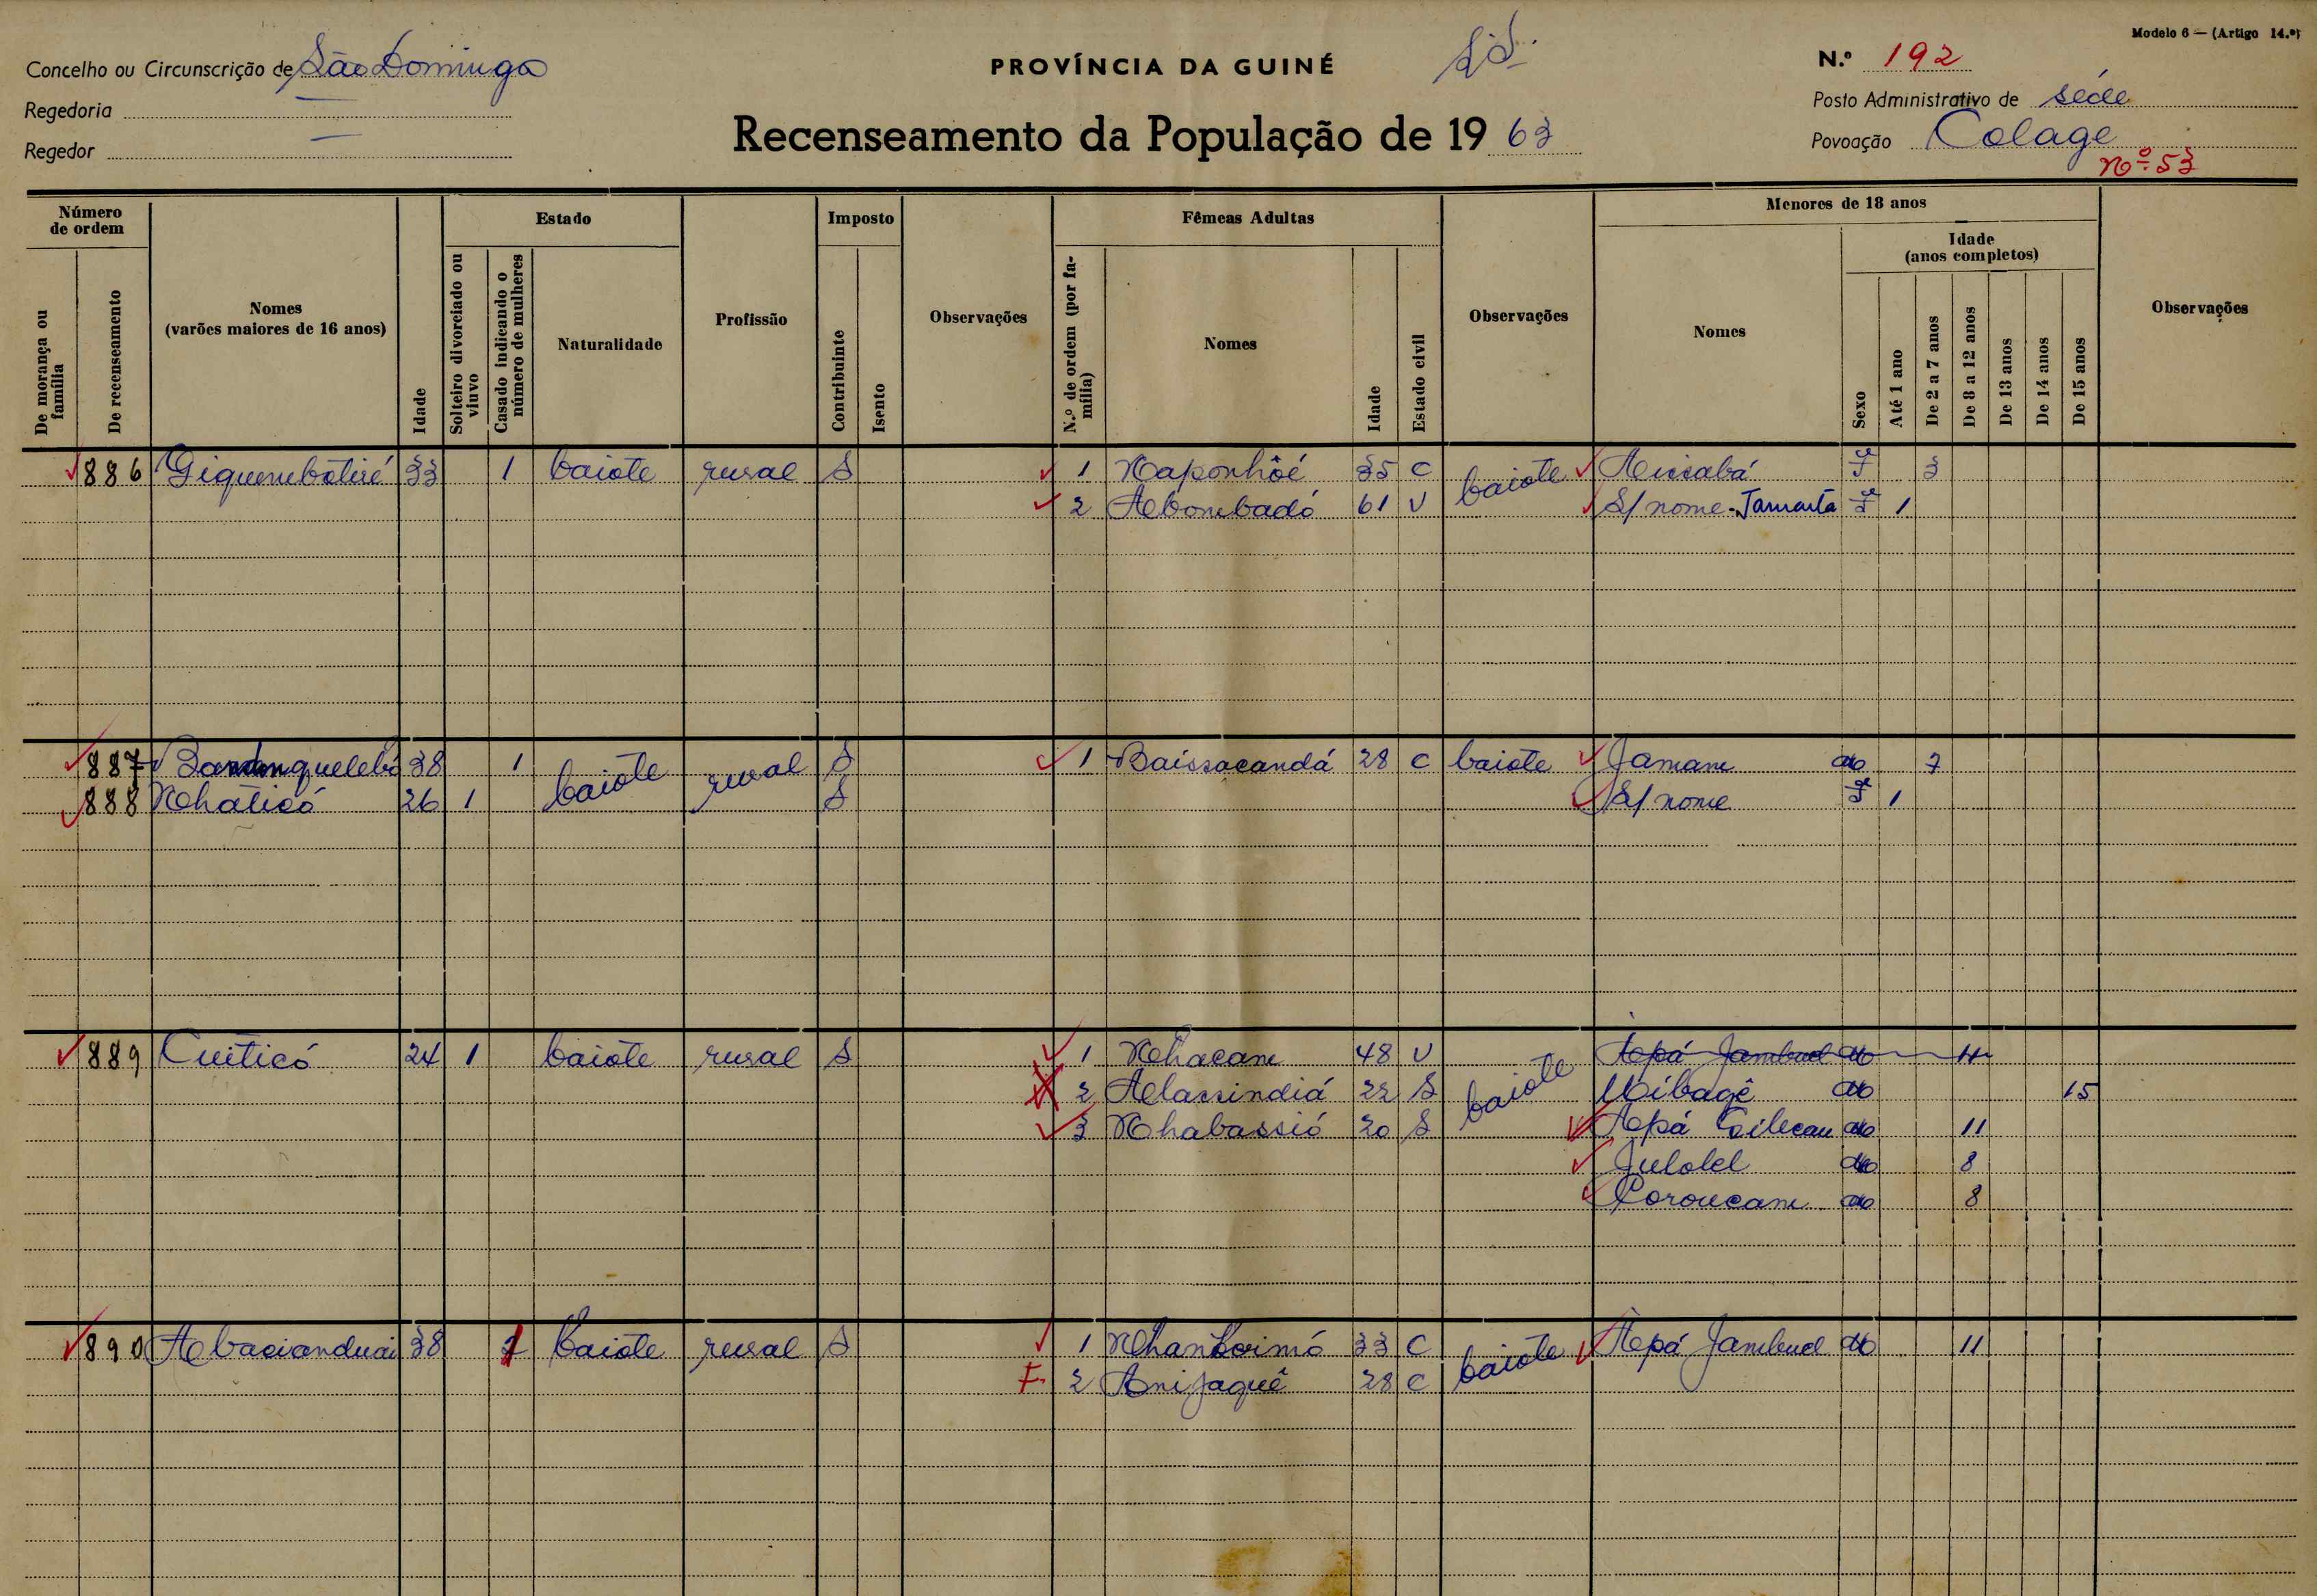 Modelo 6 — (Artigo 14.º)
Concelho ou Circunscrição de São Domingo PROVÍNCIA DA GUINÉ N.º 192
Regedoria — Posto Administrativo de séde
Regedor — Recenseamento da População de 19 63 Povoação Colage
Nº 53
Número de ordem Estado Imposto Fêmeas Adultas Menores de 18 anos
Idade (anos completos)
De morança ou família De recenseamento Nomes (varões maiores de 16 anos) Idade Solteiro divorciado ou viuvo Casado indicando o número de mulheres Naturalidade Profissão Contribuinte Isento Observações N.º de ordem (por família) Nomes Idade Estado civil Observações Nomes Sexo Até 1 ano De 2 a 7 anos De 8 a 12 anos De 13 anos De 14 anos De 15 anos Observações
886 33 1 baiote rural S 1 Naponhôé 35 C baiote F 3
2 61 V S/ nome - Tamantã F 1
887 38 1 baiote rural S 1 Baissacandá 28 C baiote Jamam 7
888 Nhaticó 26 1 S S/ nome F 1
889 Cuiticó 24 1 baiote rural S 1 Nhacam 48 V baiote Apá Jambuel 11
2 Alassindiá 22 S Uibagê 15
3 Nhabassió 20 S Apá 11
Julolel 8
Coroucam 8
890 38 1 baiote rural S 1 33 C baiote Apá Jambuel 11
F. 2 Anijaquê 28 C